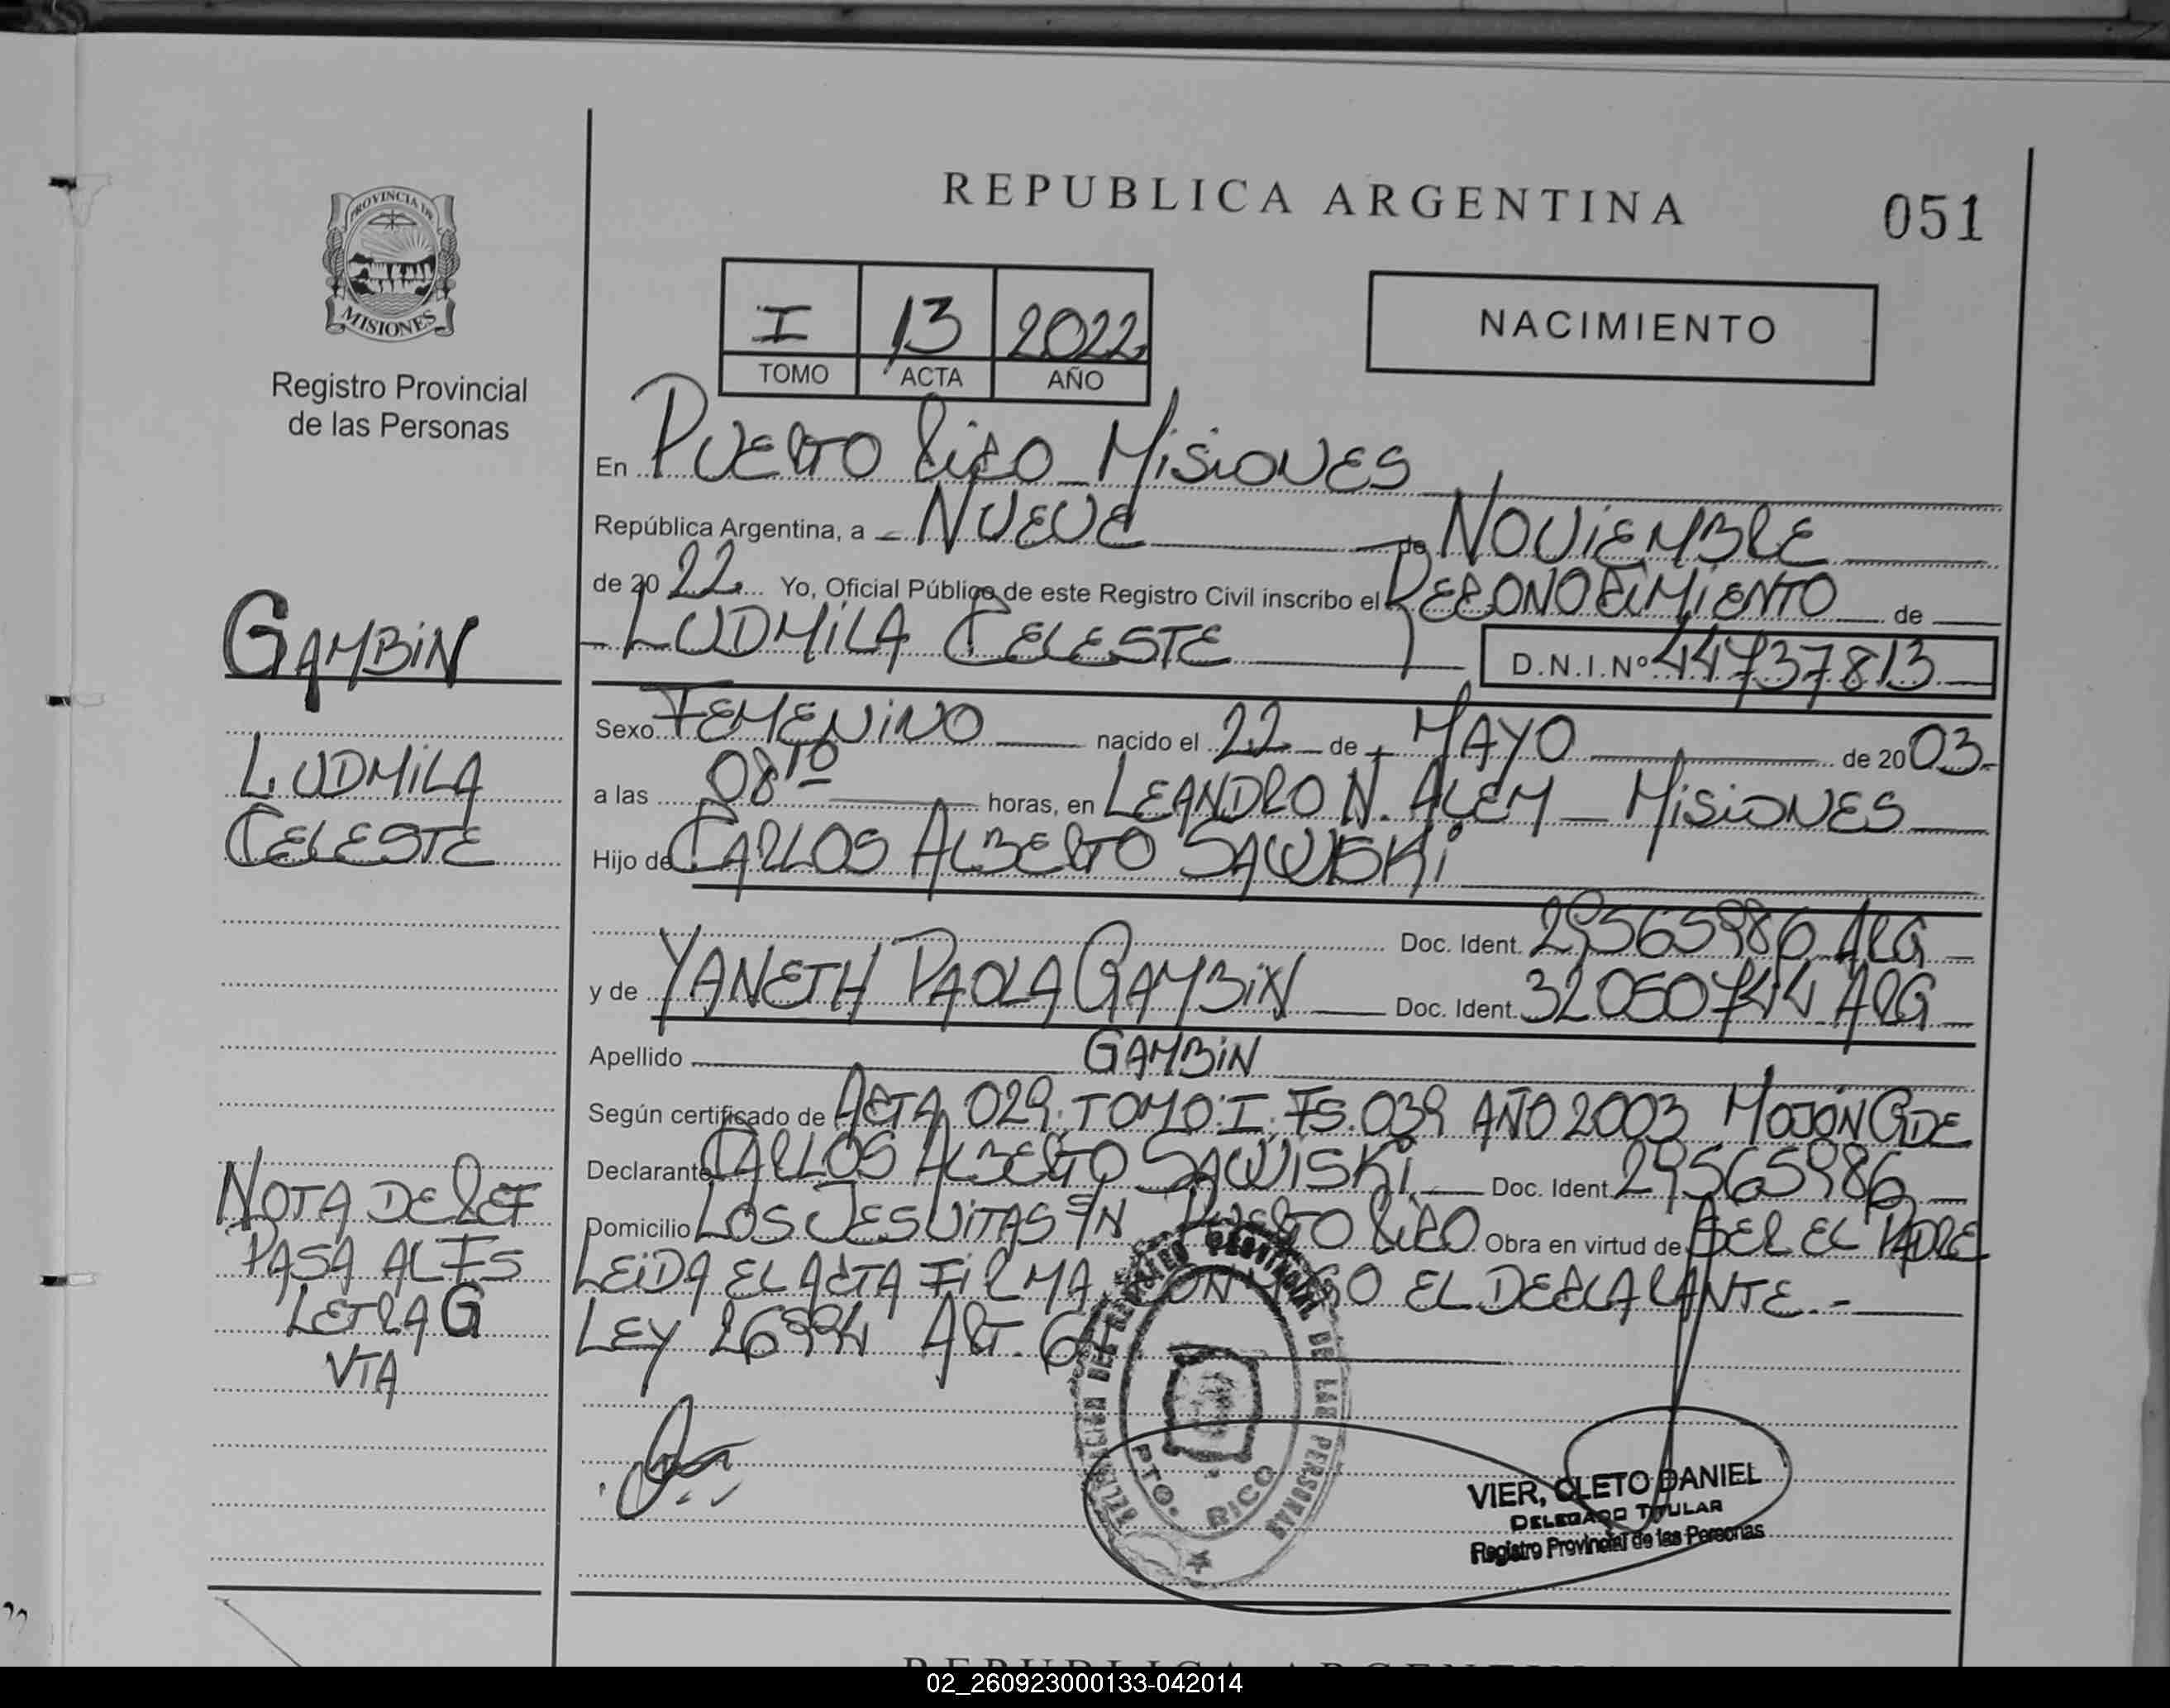 PROVINCIA DE
MISIONES
Registro Provincial
de las Personas
REPUBLICA ARGENTINA
051
I 13 2022
TOMO ACTA AÑO
NACIMIENTO
En PUERTO RICO - MISIONES
República Argentina, a - NUEVE de NOVIEMBRE
de 2022 Yo, Oficial Público de este Registro Civil inscribo el RECONOCIMIENTO de
LUDMILA CELESTE D.N.I.Nº 44737813
Sexo FEMENINO nacido el 22 de MAYO de 2003.
a las 08 10 horas, en LEANDRO N. ALEM - MISIONES
Hijo de CARLOS ALBERTO SAWISKI
Doc. Ident. 29565986 ARG
y de YANETH PAOLA GAMBIN Doc. Ident. 32050744 ARG
Apellido GAMBIN
Según certificado de ACTA 029. TOMO: I. FS. 039 AÑO 2003 MOJÓN GDE
Declarante CARLOS ALBERTO SAWISKI Doc. Ident. 29565986
Domicilio LOS JESUITAS S/N PUERTO RICO Obra en virtud de SER EL PADRE
LEIDA EL ACTA FIRMA CONMIGO EL DECLARANTE.-
LEY 26994 ART. 64
GAMBIN
LUDMILA
CELESTE
NOTA DE REF
PASA AL FS
LETRA G
VTA
DELEGACION DEL REGISTRO PROVINCIAL DE LAS PERSONAS
PTO. RICO
VIER, CLETO DANIEL
DELEGADO TITULAR
Registro Provincial de las Personas
REPUBLICA ARGENTINA
02_260923000133-042014